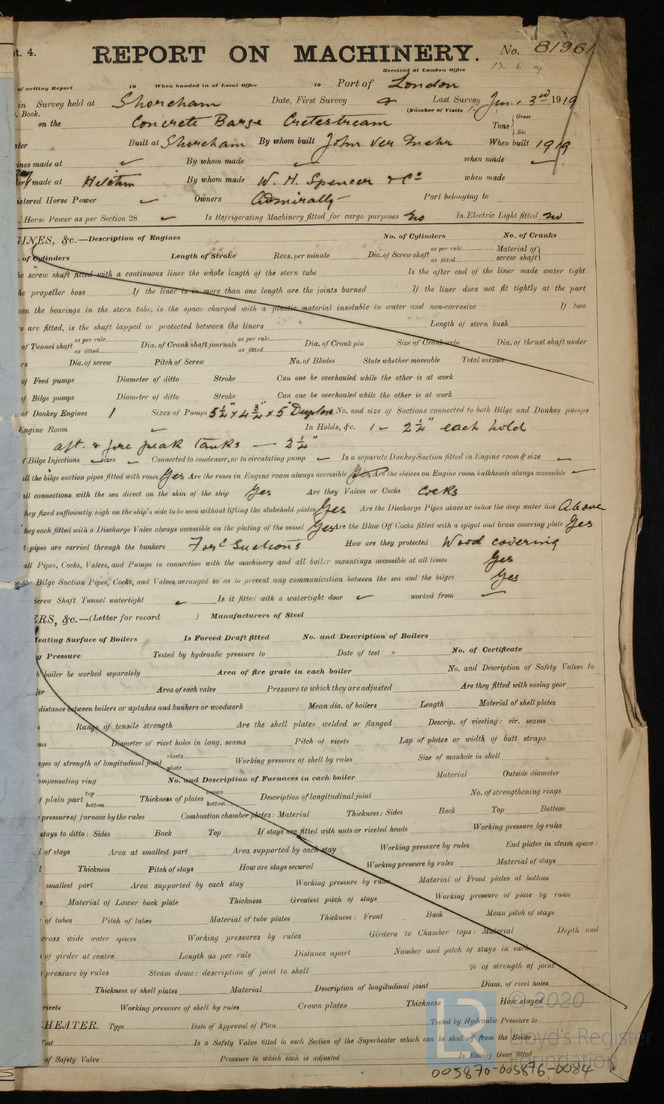 t. 4.
REPORT ON MACHINERY. No. 81961
Received at London Office
of writing Report 19 When handed in at Local Office 19 Port of London
in Survey held at Shoreham Date, First Survey Last Survey June 3rd 1919
Book. (Number of Visits
on the Concrete Barge Cretestream Tons { Gross
Net
Built at Shoreham By whom built John Ver Mehr When built 1919
ines made at ✓ By whom made ✓ when made ✓
made at Hitchin By whom made W. H. Spencer & Co when made
istered Horse Power ✓ Owners Admiralty Port belonging to
Horse Power as per Section 28 ✓ Is Refrigerating Machinery fitted for cargo purposes no Is Electric Light fitted no
GINES, &c.—Description of Engines No. of Cylinders No. of Cranks
of Cylinders Length of Stroke Revs. per minute Dia. of Screw shaft as per rule as fitted Material of screw shaft
he screw shaft fitted with a continuous liner the whole length of the stern tube Is the after end of the liner made water tight
he propeller boss If the liner is in more than one length are the joints burned If the liner does not fit tightly at the part
een the bearings in the stern tube, is the space charged with a plastic material insoluble in water and non-corrosive If two
s are fitted, is the shaft lapped or protected between the liners Length of stern bush
of Tunnel shaft as per rule as fitted Dia. of Crank shaft journals as per rule as fitted Dia. of Crank pin Size of Crank webs Dia. of thrust shaft under
rs Dia. of screw Pitch of Screw No. of Blades State whether moveable Total surface
of Feed pumps Diameter of ditto Stroke Can one be overhauled while the other is at work
of Bilge pumps Diameter of ditto Stroke Can one be overhauled while the other is at work
of Donkey Engines 1 Sizes of Pumps 5¼" x 4¾" x 5" Duplex No. and size of Suctions connected to both Bilge and Donkey pumps
Engine Room ✓ In Holds, &c. 1 – 2¼" each hold
aft. & fore peak tanks — 2¼"
f Bilge Injections ✓ sizes ✓ Connected to condenser, or to circulating pump ✓ Is a separate Donkey Suction fitted in Engine room & size ✓
ll the bilge suction pipes fitted with roses Yes Are the roses in Engine room always accessible Yes Are the sluices on Engine room bulkheads always accessible ✓
ll connections with the sea direct on the skin of the ship Yes Are they Valves or Cocks Cocks
hey fixed sufficiently high on the ship's side to be seen without lifting the stokehold plates Yes Are the Discharge Pipes above or below the deep water line Above
hey each fitted with a Discharge Valve always accessible on the plating of the vessel Yes Are the Blow Off Cocks fitted with a spigot and brass covering plate Yes
t pipes are carried through the bunkers Ford Suctions How are they protected Wood covering
all Pipes, Cocks, Valves, and Pumps in connection with the machinery and all boiler mountings accessible at all times Yes
he Bilge Suction Pipes, Cocks, and Valves arranged so as to prevent any communication between the sea and the bilges Yes
Screw Shaft Tunnel watertight ✓ Is it fitted with a watertight door ✓ worked from —
ERS, &c.—(Letter for record ) Manufacturers of Steel
Heating Surface of Boilers Is Forced Draft fitted No. and Description of Boilers
g Pressure Tested by hydraulic pressure to Date of test No. of Certificate
h boiler be worked separately Area of fire grate in each boiler No. and Description of Safety Valves to
ler Area of each valve Pressure to which they are adjusted Are they fitted with easing gear
distance between boilers or uptakes and bunkers or woodwork Mean dia. of boilers Length Material of shell plates
ss Range of tensile strength Are the shell plates welded or flanged Descrip. of riveting: cir. seams
ams Diameter of rivet holes in long. seams Pitch of rivets Lap of plates or width of butt straps
ages of strength of longitudinal joint rivets plate Working pressure of shell by rules Size of manhole in shell
ompensating ring No. and Description of Furnaces in each boiler Material Outside diameter
f plain part top bottom Thickness of plates crown bottom Description of longitudinal joint No. of strengthening rings
pressure of furnace by the rules Combustion chamber plates: Material Thickness: Sides Back Top Bottom
stays to ditto: Sides Back Top If stays are fitted with nuts or riveted heads Working pressure by rules
l of stays Area at smallest part Area supported by each stay Working pressure by rules End plates in steam space:
l Thickness Pitch of stays How are stays secured Working pressure by rules Material of stays
smallest part Area supported by each stay Working pressure by rules Material of Front plates at bottom
Material of Lower back plate Thickness Greatest pitch of stays Working pressure of plate by rules
of tubes Pitch of tubes Material of tube plates Thickness: Front Back Mean pitch of stays
cross wide water spaces Working pressures by rules Girders to Chamber tops: Material Depth and
of girder at centre Length as per rule Distance apart Number and pitch of stays in each
pressure by rules Steam dome: description of joint to shell % of strength of joint
Thickness of shell plates Material Description of longitudinal joint Diam. of rivet holes
rivets Working pressure of shell by rules Crown plates Thickness How stayed
HEATER. Type Date of Approval of Plan Tested by Hydraulic Pressure to
Test Is a Safety Valve fitted to each Section of the Superheater which can be shut off from the Boiler
of Safety Valve Pressure to which each is adjusted Is Easing Gear fitted
© 2020
Lloyd's Register
Foundation
005870-005876-0084